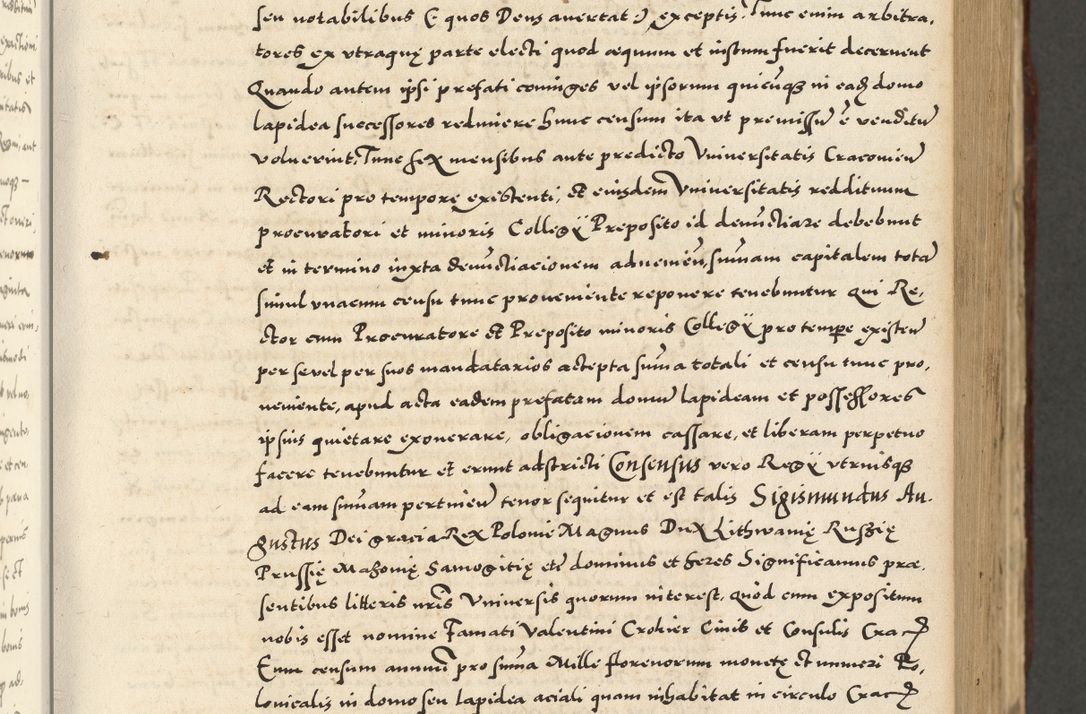 seu notabilibus (: quos Deus avertat :) exceptis. Tunc enim arbitra,
tores ex vtraque parte electi quod aequum et iustum fuerit decernent
Quando autem ipsi prefati coniuges vel ipsorum quicūqз in eadē domo
lapidea successores redimere hunc censum ita vt premissū ē venditū
voluerint, Tunc sex mensibus ante predicto Vniversitatis Cracovien̄
Rectori pro tempore existenti, et eiusdem Vniversitatis reddituum
procuratori et minoris Collegÿ Preposito id denūctiare debebunt
et in termino iuxta denūctiacionem advenien̄, sum̄am capitalem totā
simul vnacum censu tunc proveniente reponere tenebuntur Qui Re,
ctor cum Procuratore et Preposito minoris Collegÿ pro tempe existen̄
per se vel per suos mandatarios accepta sum̄a totali et censu tunc pro,
veniente, apud acta eadem prefatam domum lapideam et possessores
ipsius quietare exonerare, obligacionem cassare, et liberam perpetuo
facere tenebuntur et erunt adstricti Consensus vero Regÿ vtriusqз
ad eam sum̄am pertinen̄ tenor sequitur et est talis Sigismundus Au.
gustus Dei gracia Rex Polonie Magnus Dux Lithwanię Russię
Prussię Mazovię Samogitię etc̄ dominus et heres Significamus præ.
sentibus litteris nr̄is Vniversis quorum interest, Quod cum expositum
nobis esset nomine Famati Valentini Crokier Civis et Consulis Crac
Eum censum annuū pro sum̄a Mille florenorum monetę et numeri Po,
lonicalis in domo seu lapidea aciali quam inhabitat in circulo Crac